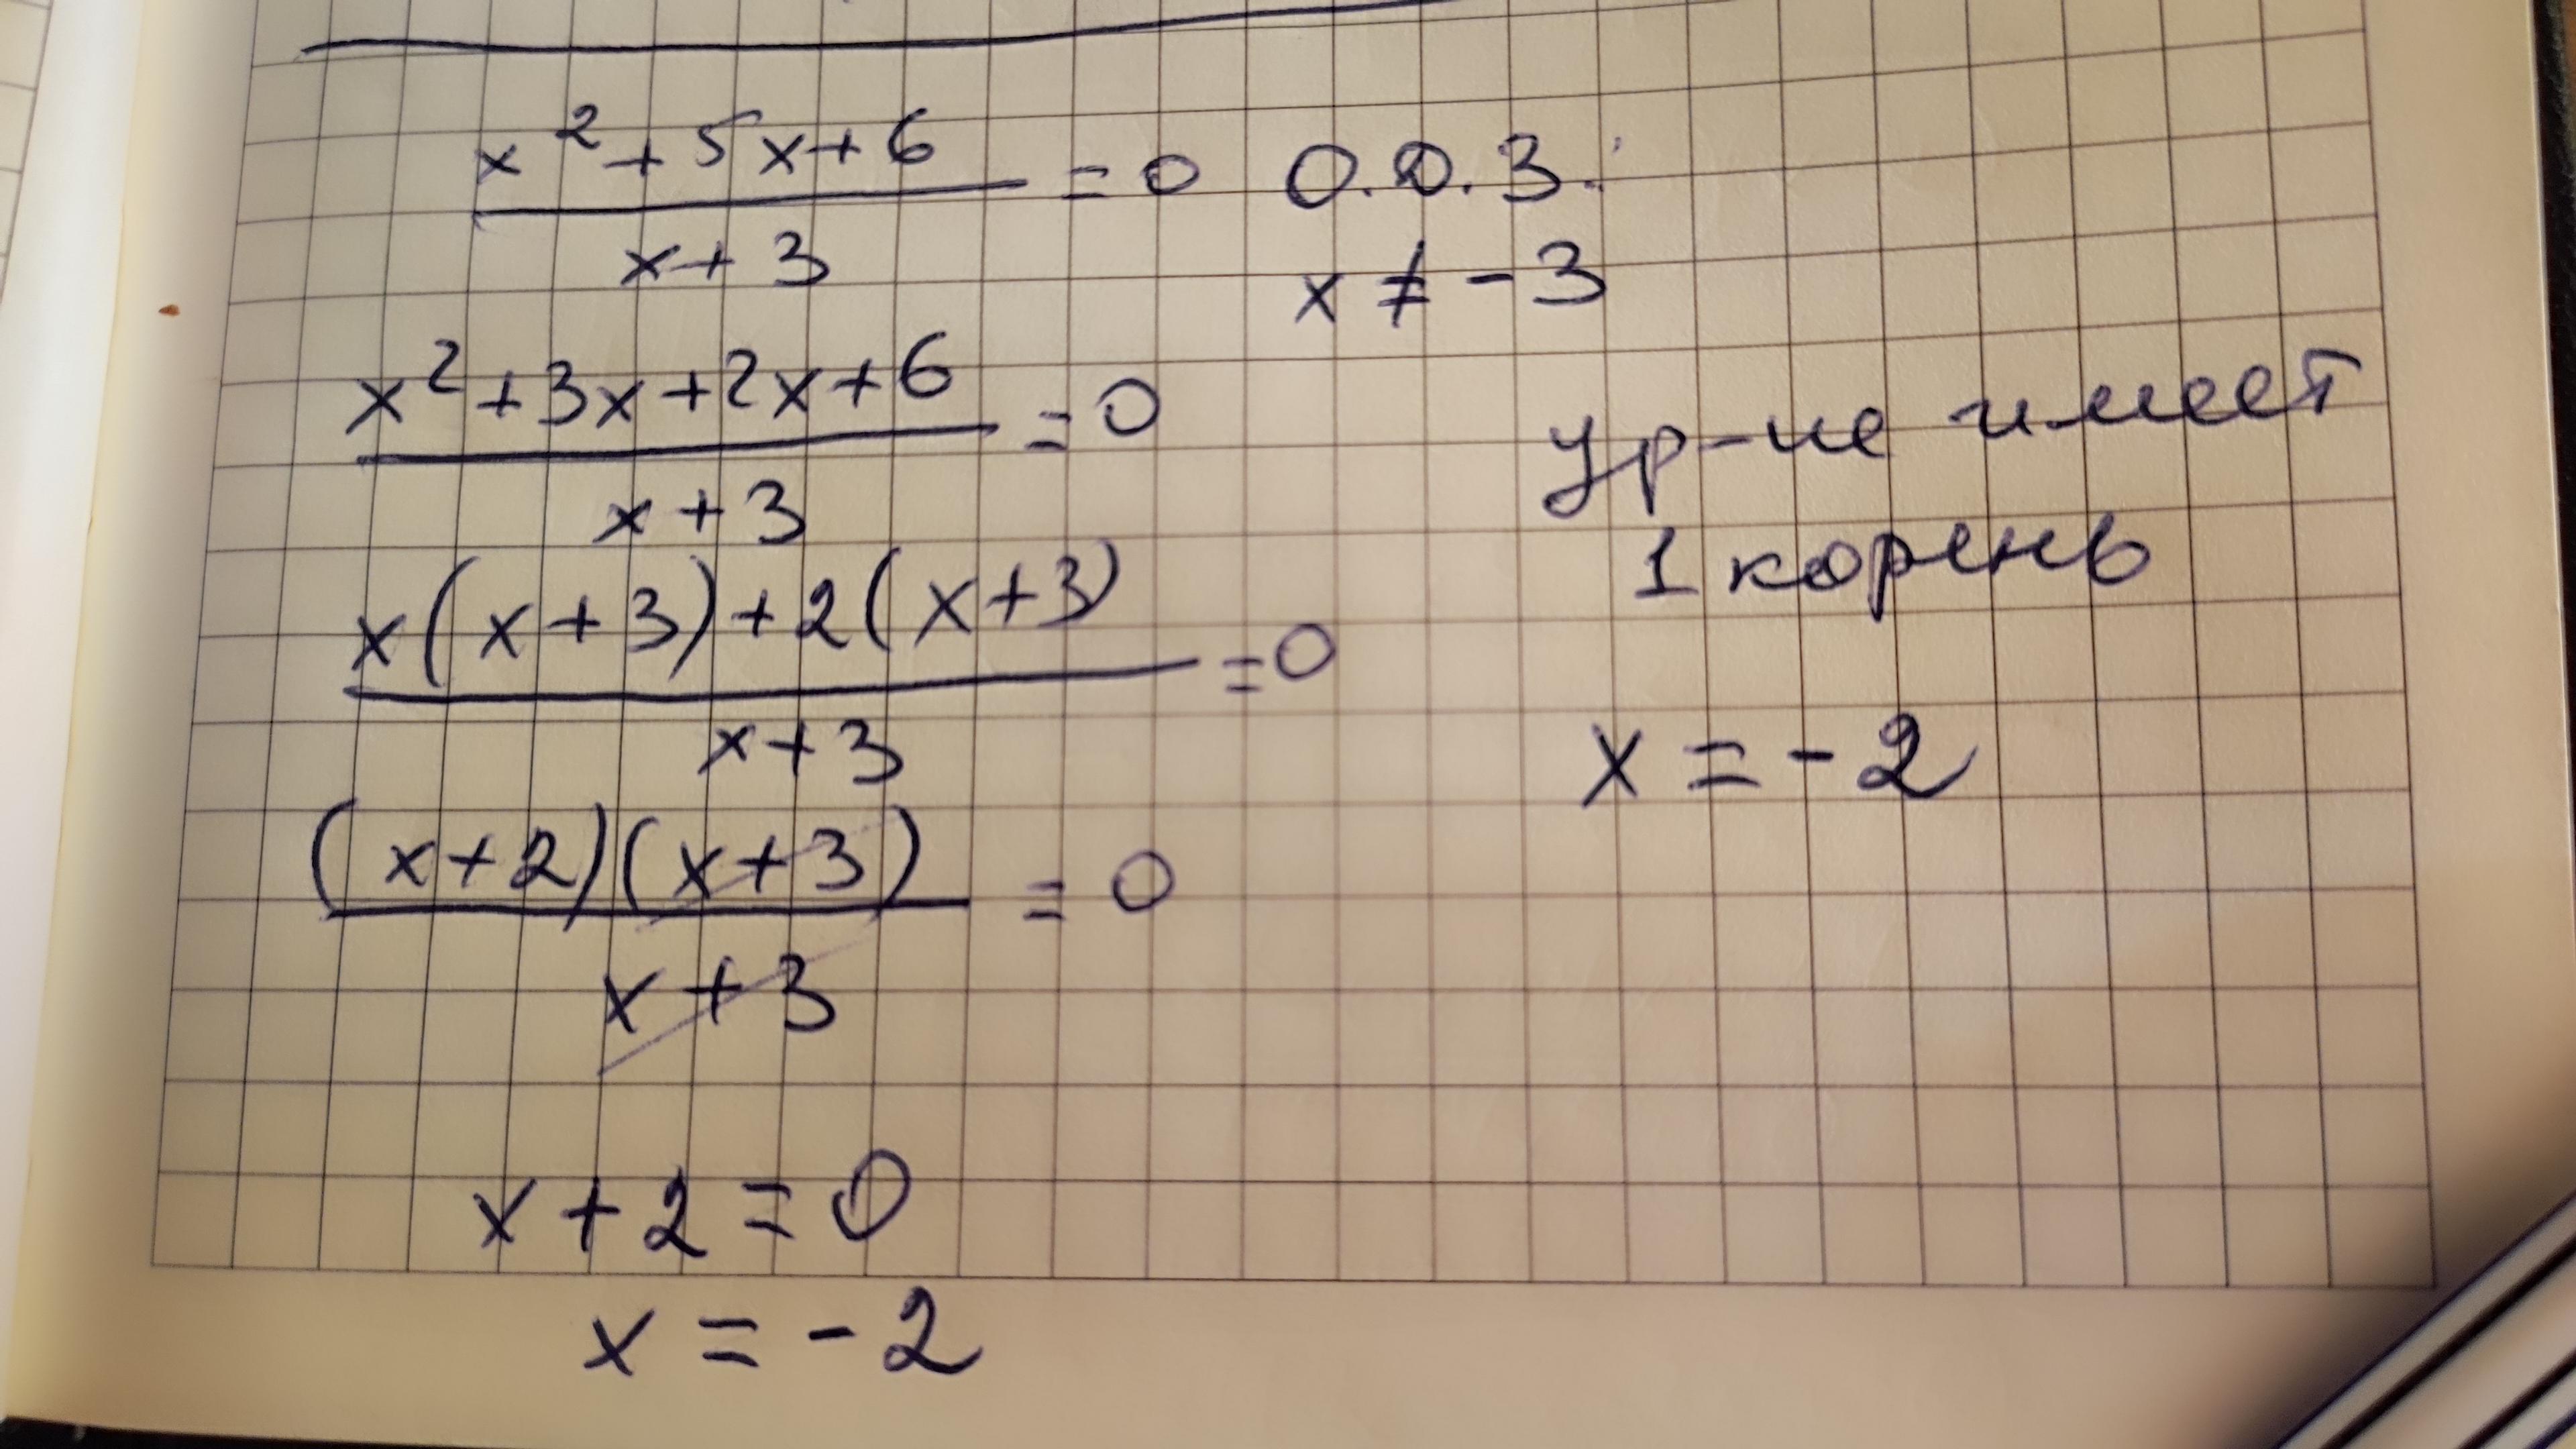 x² + 5x + 6
―――――― = 0   О.Д.З.:
x + 3
x ≠ -3
x² + 3x + 2x + 6
―――――― = 0
x + 3
ур-ие имеет
1 корень
x(x + 3) + 2(x + 3)
―――――― = 0
x + 3
x = -2
(x + 2)(x + 3)
―――――― = 0
x + 3
x + 2 = 0
x = -2